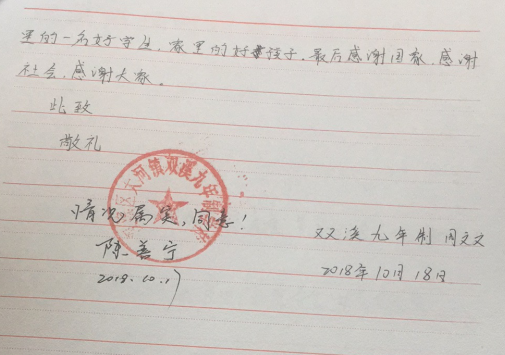 里的一名好学生，家里的好孩子，最后感谢国家，感谢
社会，感谢大家。
此致
敬礼
区大河镇双溪九年制学校
情况属实，同意！
陈善宁
2018.10.17
双溪九年制 周文文
2018年10月18日